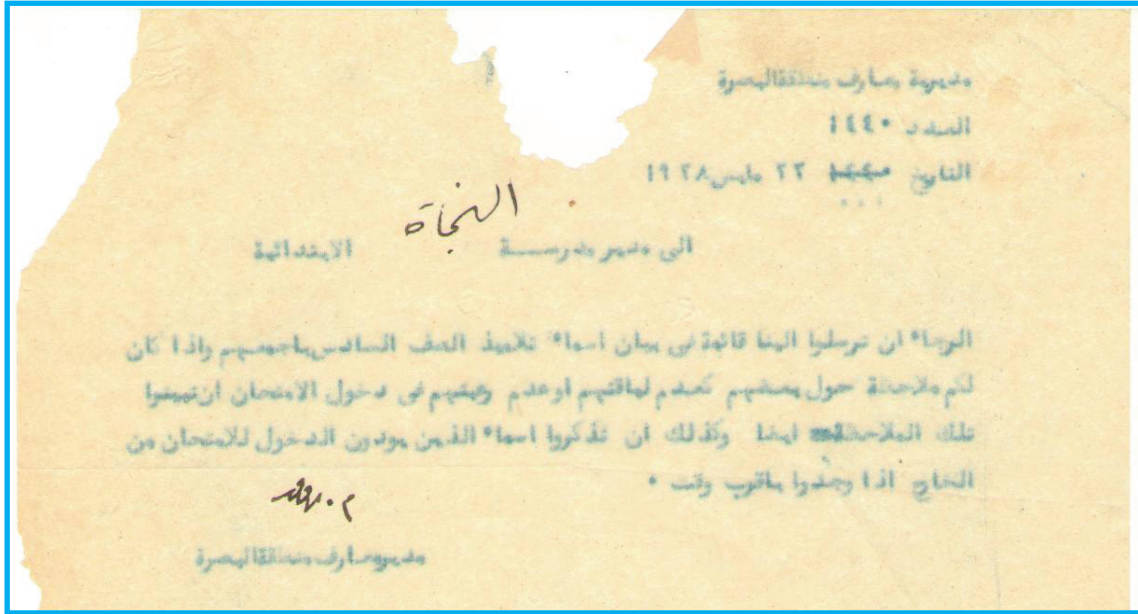 مديرية معارف منطقة البصرة
العدد ١٤٤٠
التاريخ ٢٢ مايس ١٩٢٨
الى مدير مدرســة النجاة الابتدائية
الرجاء ان ترسلوا الينا قائمة فى بيان اسماء تلاميذ الصف السادس باجمعهم واذا كان
لكم ملاحظة حول بعضهم كعدم لياقتهم اوعدم رغبتهم فى دخول الامتحان ان تبينوا
تلك الملاحظة ايضا وكذلك ان تذكروا اسماء الذين يودون الدخول للامتحان من
الخارج اذا وجدوا باقرب وقت ٠
مدير معارف منطقة البصرة